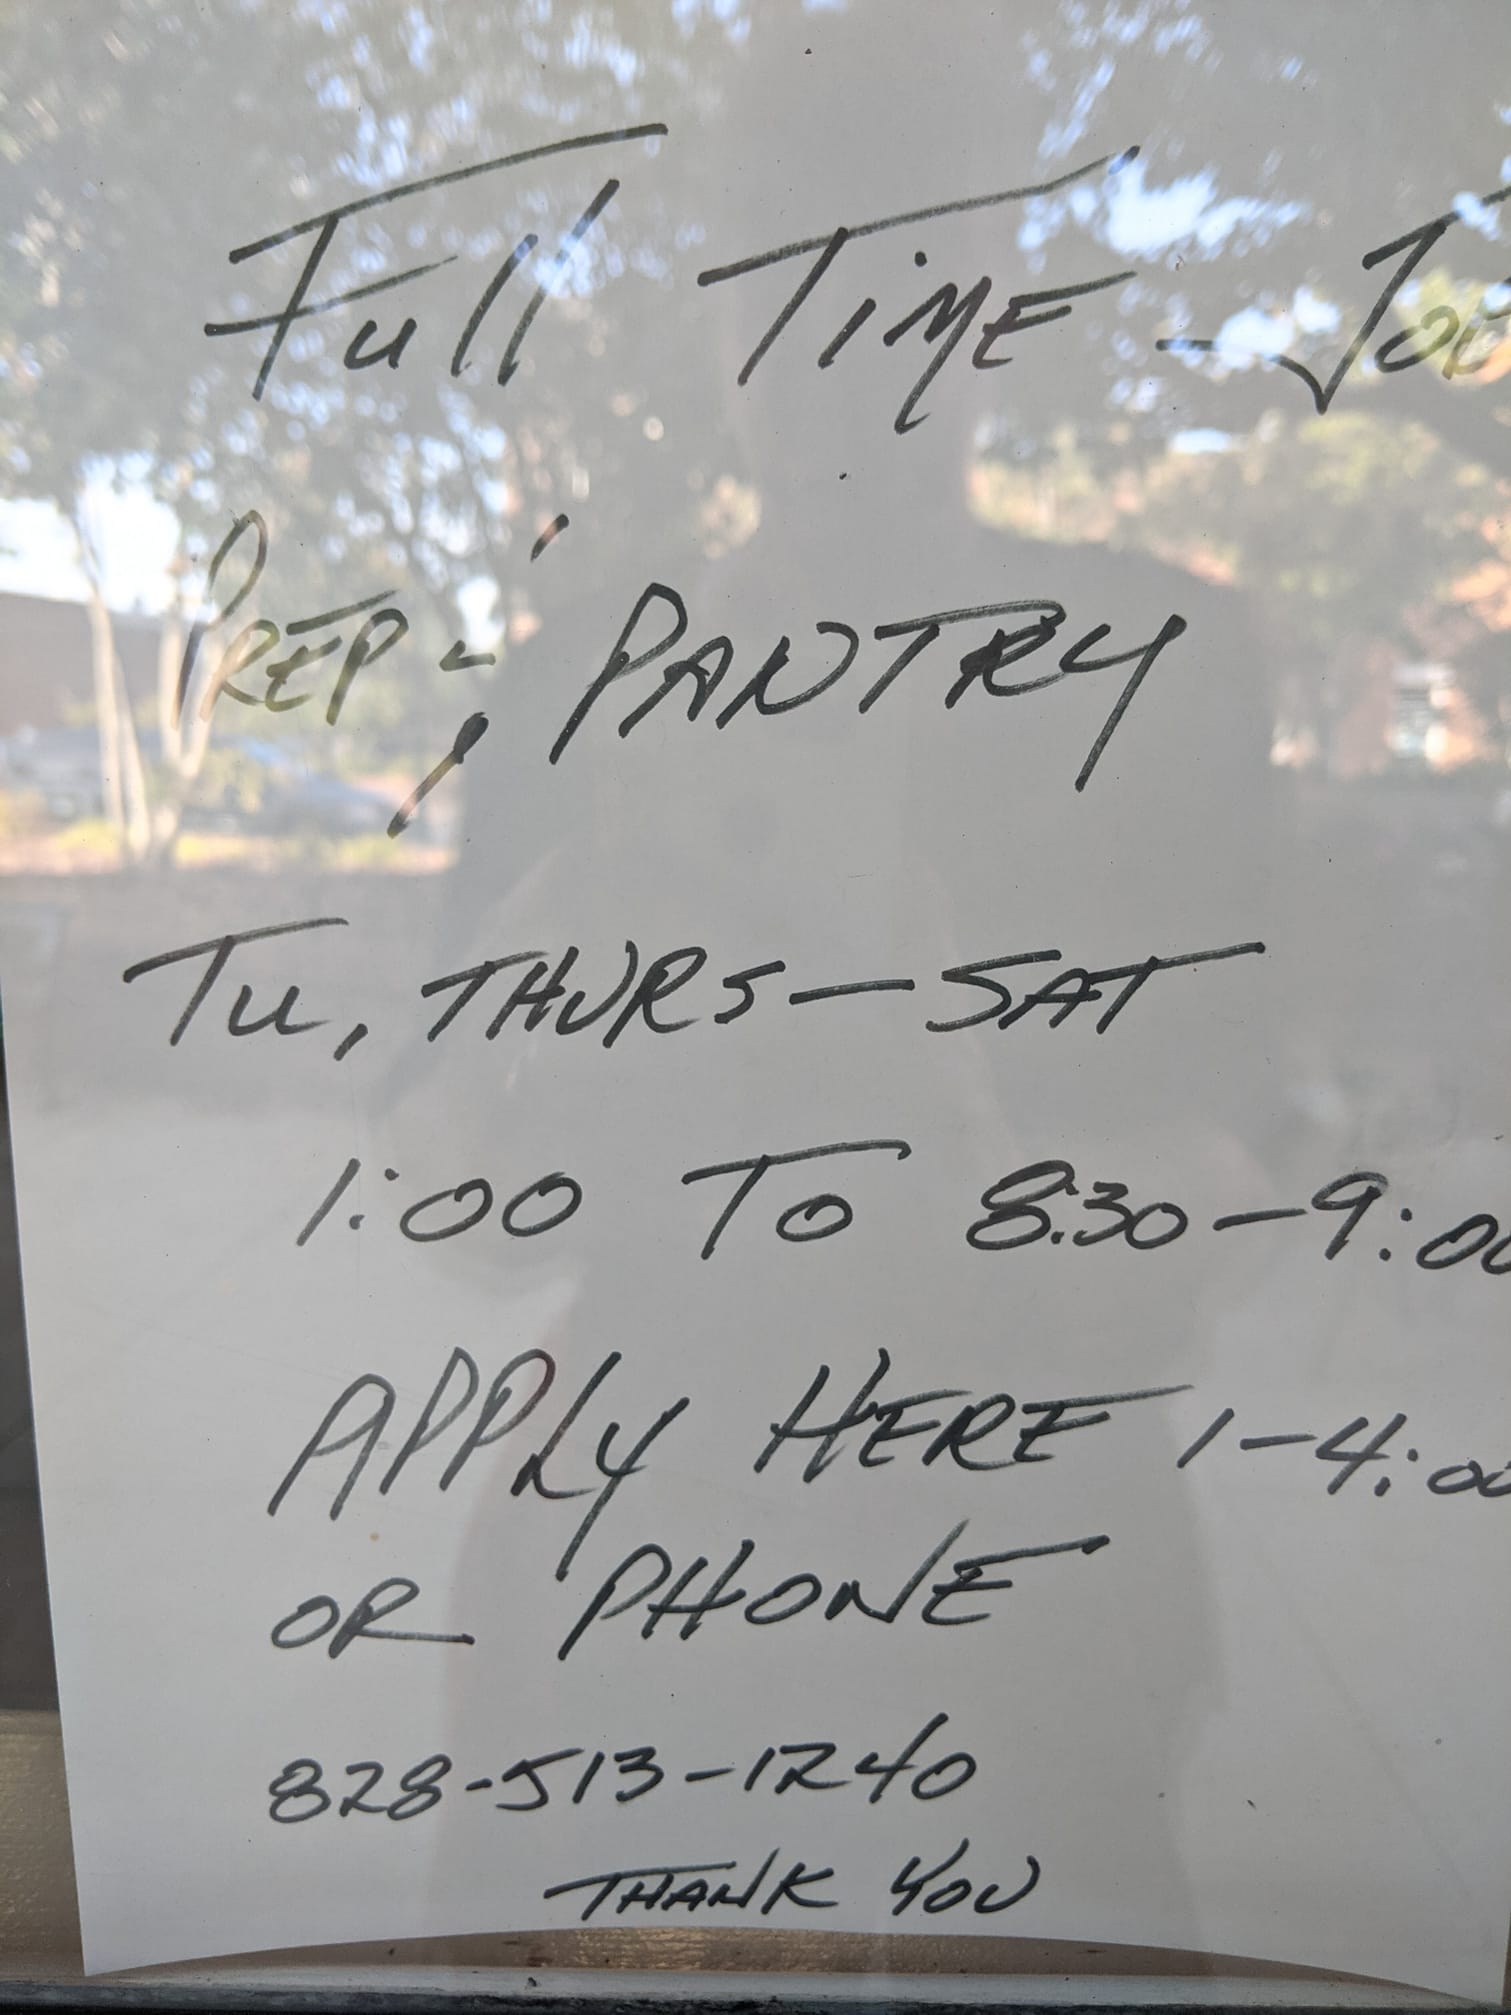 Full TiME - JOB
PREP & PANTRY
Tu, THURS - SAT
1:00 TO 8:30 - 9:00
APPLY HERE 1-4:00
OR PHONE
828-513-1240
THANK YOU